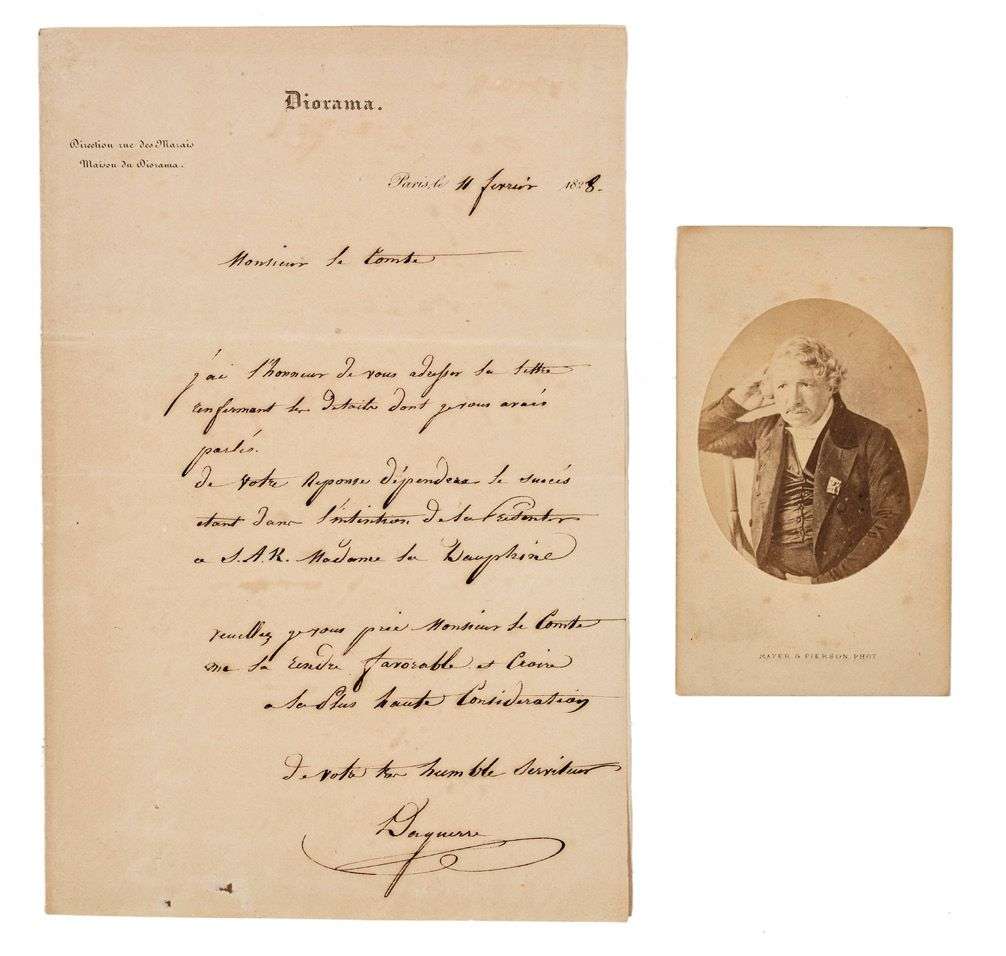 Diorama.
Direction rue des Marais
Maison du Diorama.
Paris, le 11 fevrier 1828.
Monsieur le Comte
j'ai l'honneur de vous adresser la lettre
renfermant les details dont je vous avais
parlés.
de votre reponse dépendera le succès
etant dans l'intention de la Presenter
a S.A.R. Madame la Dauphine
veuillez je vous prie Monsieur le Comte
me la rendre favorable et Croire
a la Plus haute Consideration
de votre tres humble Serviteur
Daguerre
MAYER & PIERSON PHOT